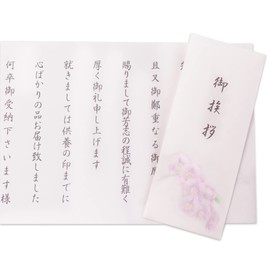 御挨拶
且又御鄭重なる御
賜りまして御芳志の程誠に有難く
厚く御礼申し上げます
就きましては供養の印までに
心ばかりの品お届け致しました
何卒御受納下さいます様